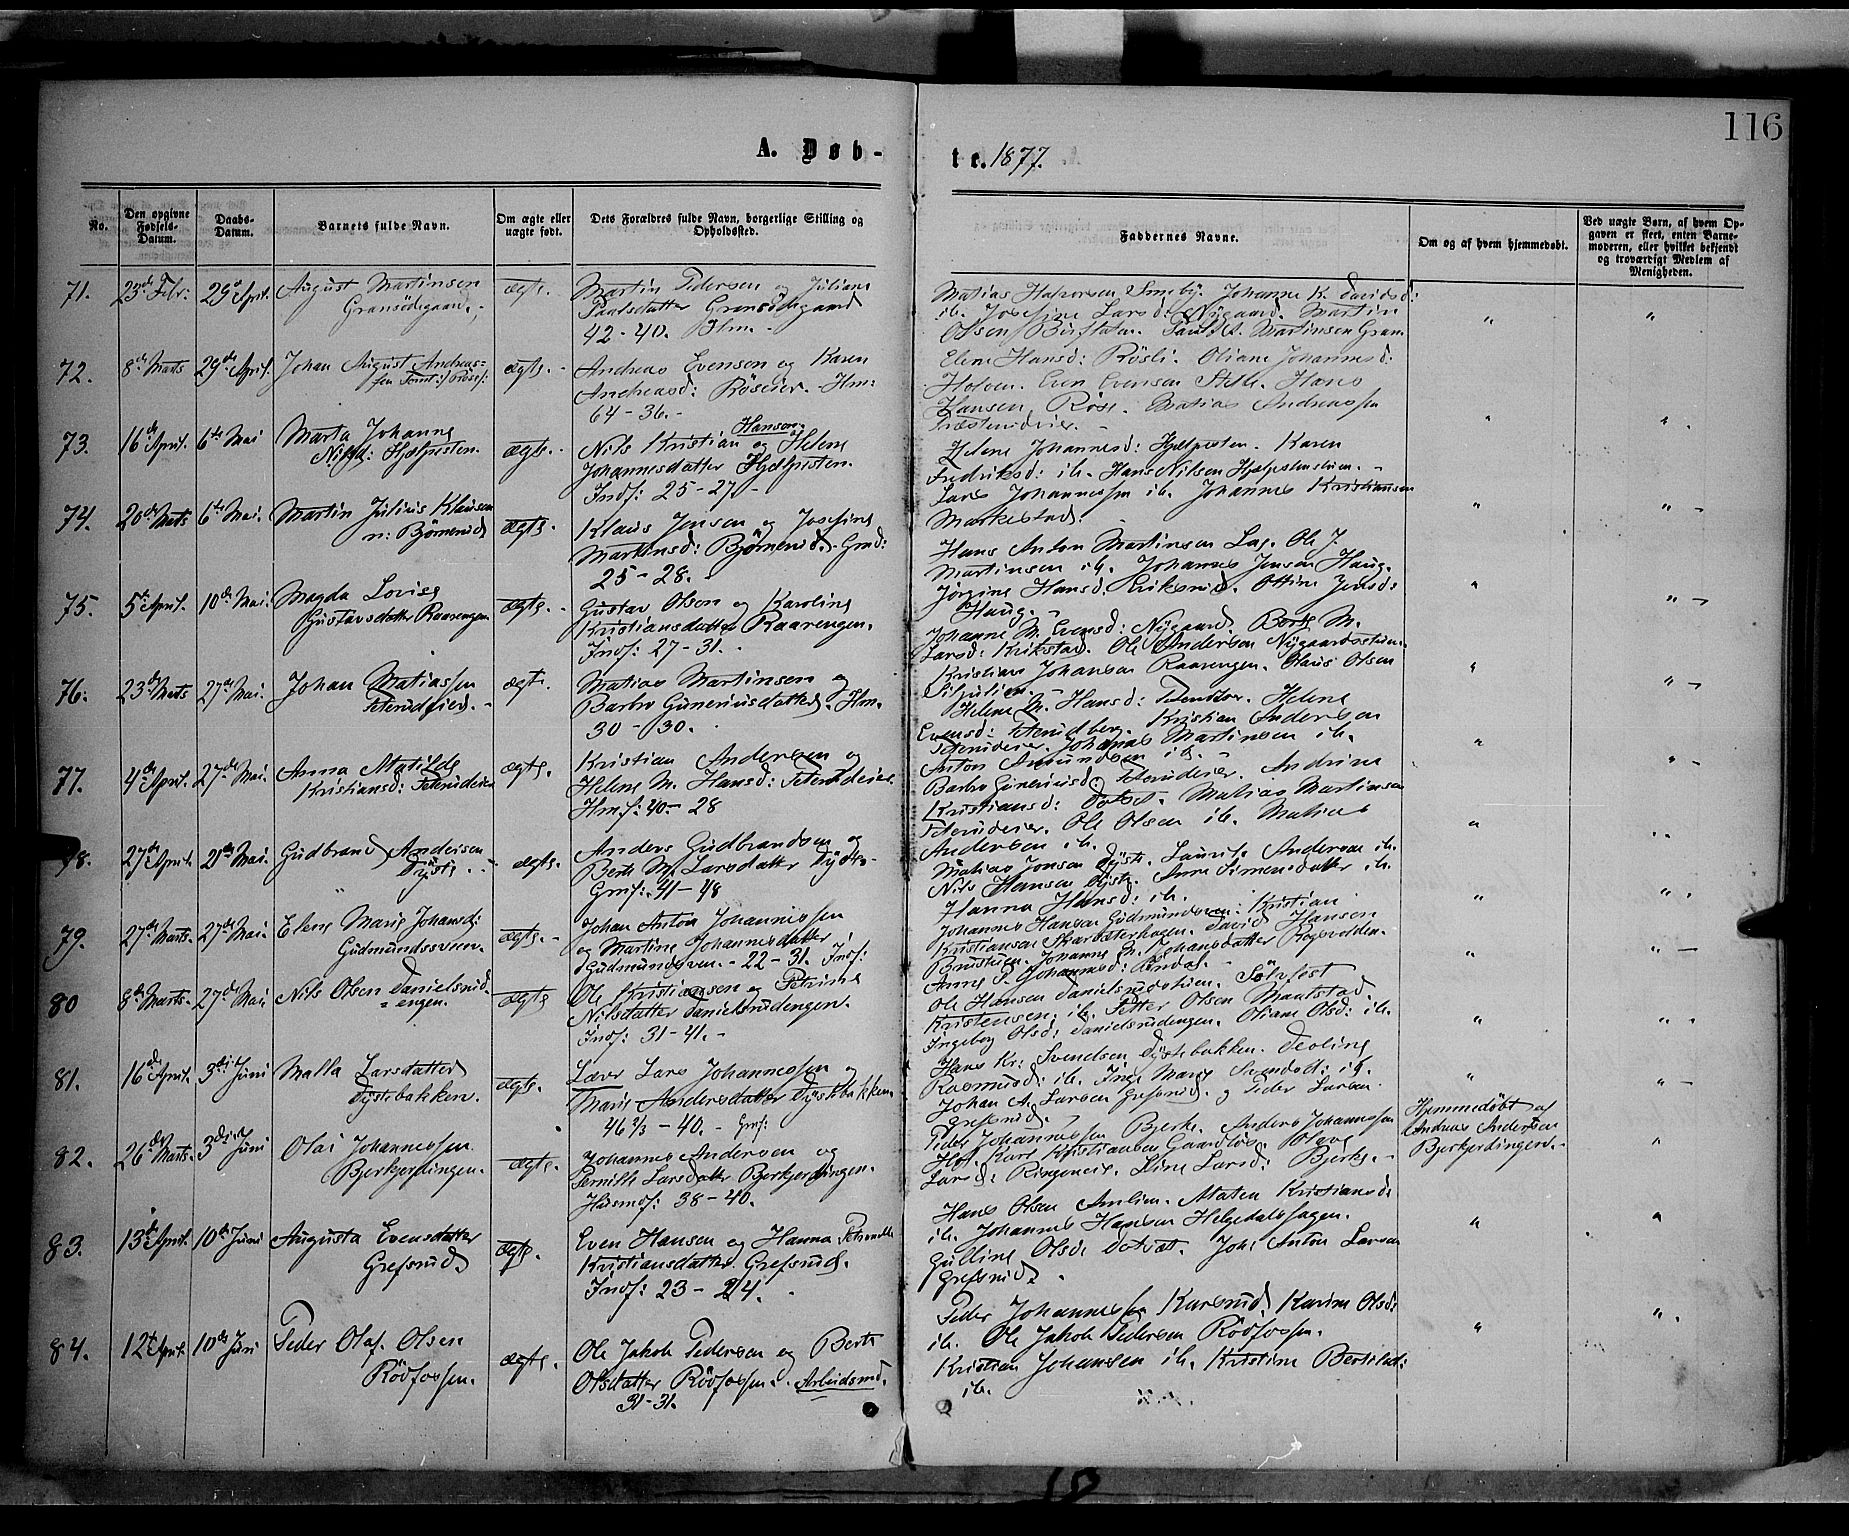 116
A. Døb-
te. 1877.
No.
Den opgivne Fødsels-Datum.
Daabs-Datum.
Barnets fulde Navn.
Om ægte eller uægte født.
Dets Forældres fulde Navn, borgerlige Stilling og Opholdssted.
Faddernes Navne.
Om og af hvem hjemmedøbt.
Ved uægte Børn, af hvem Op-
gaven er skeet, enten Barne-
moderen, eller hvilket bekjendt
og troværdigt Medlem af
Menigheden.
71. 23de Febr. 29de April. August Martinsen ægte.
Gransødegaard.
Martin Pedersen og Juliane
Paulsdatter Gransødegaard
42-40.
Matias Halvorsen Smeby. Johanne K. Davidsd:
ib. Josefine Larsd: Nygaard. Martin
Olsen Martinsen Gran
72. 8de Marts 29de April. Johan August Andreas-
sen ægte.
Andreas Evensen og Karen
Andreasd: Røseier. Hm:
64-36.
Elene Hansd: Røsli. Oliane Johannesd:
Holven. Even Evensen Hans
Hansen Røse. Matias Andreassen
73. 16de April. 6te Mai Marta Johanne
Nilsd: Hjelpesten. ægte.
Hansen
Nils Kristian og Helene
Johannesdatter Hjelpesten.
Inds: 25-27
Helene Johannesd: Hjelpesten. Karen
Fredriksd: ib. Hans Nilsen Hjelpestenstuen.
Lars Johannessen ib. Johannes Kristiansen
Markestad.
74. 20de Marts 6te Mai. Martin Julius Klausen
Bjørnerud ægte.
Klaus Jensen og Josefine
Martinsd: Bjørnerud. Grd:
25-28.
Hans Anton Martinsen Lag. Ole J.
Martinsen ib. Johannes Jensen Haug.
Jørgine Hansd: Eriksrud. Ottine Jensd:
Haug.
75. 5te April. 10de Mai. Magda Lovise
Gustavsdatter Raarengen ægte.
Gustav Olsen og Karoline
Kristiansdatter Raarengen.
Inds: 27-31.
Johanne M. Evensd: Nygaard. Berte M.
Larsd: Krikstad. Ole Andersen Nygaardsstuen.
Kristian Johansen Raarengen. Olaus Olsen
76. 23de Marts 27de Mai. Johan Matiassen
Feterudeier. ægte.
Matias Martinsen og
Barbro Guneriusdatter. Hm.
30-30.
Helene M. Hansd: Helene
Evensd: Feterudberg. Kristian Andersen
Feterudeier. Johannes Martinsen ib.
Anton Amundsen ib.
77. 4de April. 27de Mai. Anna Matilde
Kristiansd: Feterudeier ægte.
Kristian Andersen og
Helene M. Hansd: Feterudeier.
Hms: 40-28
Barbro Guneriusd: Feterudeier. Andrine
Kristiansd: Matias Martinsen
Feterudeier. Ole Olsen ib. Matias
Andersen ib.
78. 27de April. 21de Mai. Gudbrand Andersen
Dyste. ægte.
Anders Gudbrandsen og
Berte M. Larsdatter Dyste
Grds: 41-48
Matias Jonsen Dyste. Laurits Andersen ib.
Nils Hansen Dyste. Anne Simensdatter ib.
Hanna Hansd: ib.
79. 27de Marts. 27de Mai. Elene Marie Johansd:
Gudmundsveen. ægte.
Johan Anton Johannessen
og Martine Johannesdatter
Gudmundsveen. 22-31. Inds:
Johannes Hansen Gudmundsveen. Kristian
Kristiansen David Hansen
Brustuen. Johanne M. Johansdatter Rognvolden.
Anne P. Johannesd:
80 8de Marts. 27de Mai Nils Olsen Danielsrud-
engen. ægte
Ole Kristiansen og Petrine
Nilsdatter Danielsrudengen.
Inds: 31-41.
Ole Hansen Danielsrudstuen. Sølvfest
Kristensen. ib. Petter Olsen Mantstad.
Ingeborg Olsd: Danielsrudengen. Oliane Olsd: ib.
81. 16de April. 3die Juni Malla Larsdatter
Dystebakken. ægte.
Lærer Lars Johannessen og
Marie Andersdatter Dystebakken.
46⅔-40.
Hans Kr: Svendsen Dystebakken. Teoline
Rasmusd: ib. Inge Marie Svendsd: ib.
Johan A. Larsen Grefsrud. og Peder Larsen
Grefsrud.
82. 26de Marts. 3die Juni Olai Johannessen
Bjerkjordingen. ægte.
Johannes Andersen og
Pernille Larsdatter Bjerkjordingen.
Husmds: 38-40.
Peder Johannessen Bjerke. Anders Johannessen
Hof. Karl Kristiansen Gaardløs. Olave
Larsd: Ringeneie. Eline Larsd: Bjerke.
Hjemmedøbt af
Andreas Andersen
Bjerkjordingen.
83. 13de April. 10de Juni Augusta Evensdatter
Grefsrud. ægte.
Even Hansen og Hanna Petrnelle
Kristiansdatter Grefsrud.
Inds: 23-24.
Hans Olsen Amlien. Maten Kristiansd:
ib. Johannes Hansen Helgedalshagen.
Gulline Olsd: Johs Anton Larsen
Grefsrud.
84. 12te April. 10de Juni Peder Olaf Olsen
Rødfossen. ægte.
Ole Jakob Pedersen og Berte
Olsdatter Rødfossen. Arbeidsmd.
31-31.
Peder Johannessen Karsrud. Karine Olsd:
ib. Ole Jakob Pedersen Rødfossen.
Kristian Johansen ib. Kristine Bertilsd:
ib.